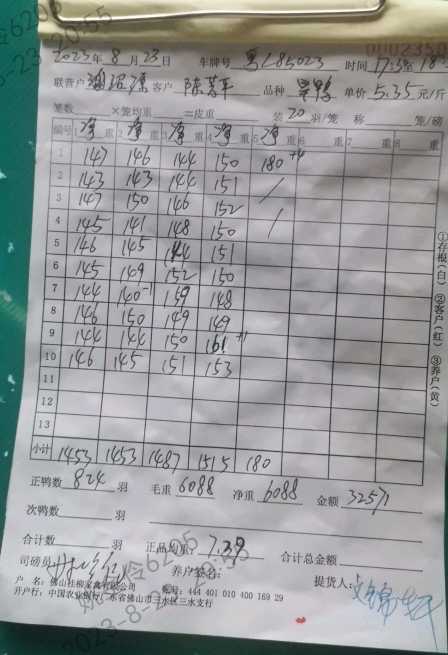 2023年8月23日 车牌号 粤L85023 时间17:5
联营户 客户 陈芳平 品种 单价5.35元/斤
笼数 ×笼均重 =皮重 装20羽/笼 称 笼/磅
编号 净重 2 净重 3 净重 4 净重 5 净重 6 重 7 重 8 重
1 147 146 144 150 180+4
2 143 143 144 151 /
3 147 150 146 152
4 145 141 148 150 /
5 146 145 144 151
6 145 149 152 150
7 144 140-1 159 148
8 146 150 149 149
9 144 144 150 161+1
10 146 145 151 153
11
12
13
小计 1453 1453 1487 1515 180
正鸭数 824 羽 毛重 6088 净重 6088 金额 32571
次鸭数 羽
合计数 羽 正品均重: 7.39 合计总金额
司磅员 养户签名: 提货人:
户 名: 佛山桂柳家禽有限公司 账号: 444 401 010 400 169 29
开户行: 中国农业银行广东省佛山市三水区三水支行
①存根(白) ②客户(红) ③养户(黄)